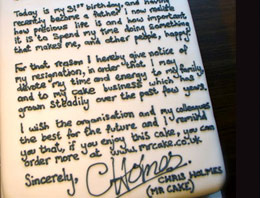 Today is my 31st birthday, and having
recently become a father I now realise
how precious life is and how important
it is to spend my time doing something
that makes me, and other people, happy.
For that reason I hereby give notice of
my resignation, in order that I may
devote my time and energy to my family
and to my cake business which has
grown steadily over the past few years.
I wish the organisation and my colleagues
the best for the future and I remind
you that, if you enjoy this cake, you can
order more at www.mrcake.co.uk
Sincerely,
CHolmes.
CHRIS HOLMES
(MR CAKE)